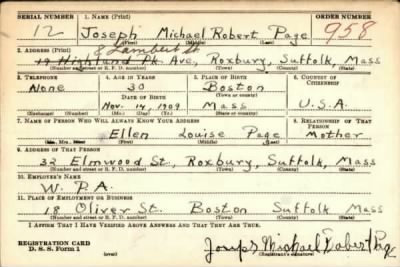 SERIAL NUMBER 1. NAME (Print) ORDER NUMBER
12 Joseph Michael Robert Page 958
(First) (Middle) (Last)
8 Lambert St
2. ADDRESS (Print)
19 Highland Pk. Ave, Roxbury, Suffolk, Mass
(Number and street or R. F. D. number) (Town) (County) (State)
3. TELEPHONE 4. AGE IN YEARS 5. PLACE OF BIRTH 6. COUNTRY OF CITIZENSHIP
None 30 Boston
DATE OF BIRTH (Town or county)
Nov. 14, 1909 Mass U.S.A.
(Exchange) (Number) (Mo.) (Day) (Yr.) (State or country)
7. NAME OF PERSON WHO WILL ALWAYS KNOW YOUR ADDRESS 8. RELATIONSHIP OF THAT PERSON
Ellen Louise Page Mother
(Mr., Mrs., Miss) (First) (Middle) (Last)
9. ADDRESS OF THAT PERSON
32 Elmwood St., Roxbury, Suffolk, Mass
(Number and street or R. F. D. number) (Town) (County) (State)
10. EMPLOYER'S NAME
W. P. A.
11. PLACE OF EMPLOYMENT OR BUSINESS
18 Oliver St. Boston Suffolk Mass
(Number and street or R. F. D. number) (Town) (County) (State)
I AFFIRM THAT I HAVE VERIFIED ABOVE ANSWERS AND THAT THEY ARE TRUE.
REGISTRATION CARD
D. S. S. Form 1 (over) Joseph Michael Robert Page
(Registrant's signature)